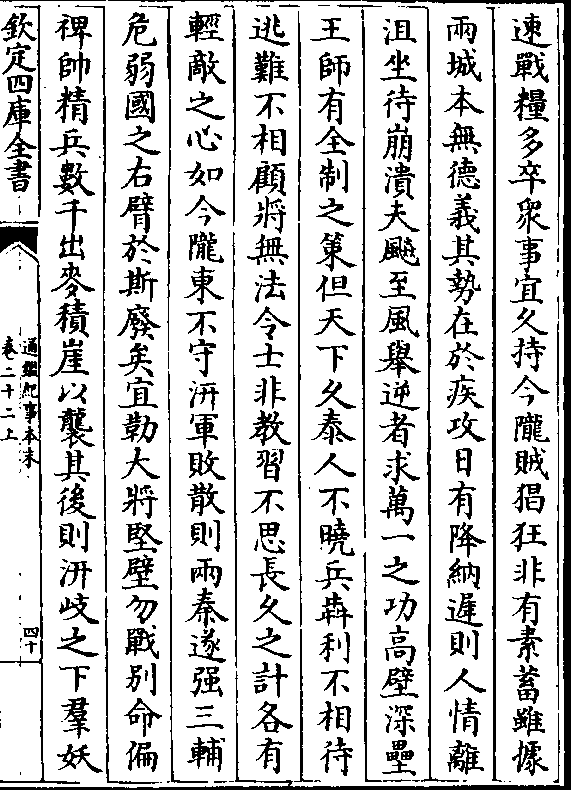 速戰糧多卒衆事宜久持今隴賊猖狂非有素蓄雖據
兩城本無德義其勢在於疾攻日有降納遲則人情離
沮坐待崩潰夫飇至風舉逆者求萬一之功高壁深壘
王師有全制之策但天下久泰人不曉兵犇利不相待
逃難不相顧將無法令士非教習不思長久之計各有
輕敵之心如今隴東不守汧軍敗散則兩秦遂强三輔
危弱國之右臂於斯廢矣宜勒大將堅壁勿戰别命偏
禆帥精兵數千出麥積崖以襲其後則汧岐之下羣妖
欽定四庫全書
通鑑紀事本末
卷二十二上
四十